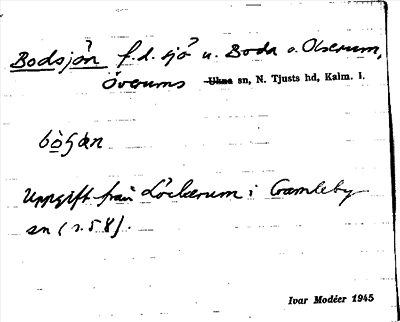 Bodsjön f.d. sjö u. Boda o. Olserum,
Överums ~~Ukna~~ sn, N. Tjusts hd, Kalm. l.
bò̀ʂæn
Uppgift från Löckerum i Gamleby
sn (s. 58).
Ivar Modéer 1945